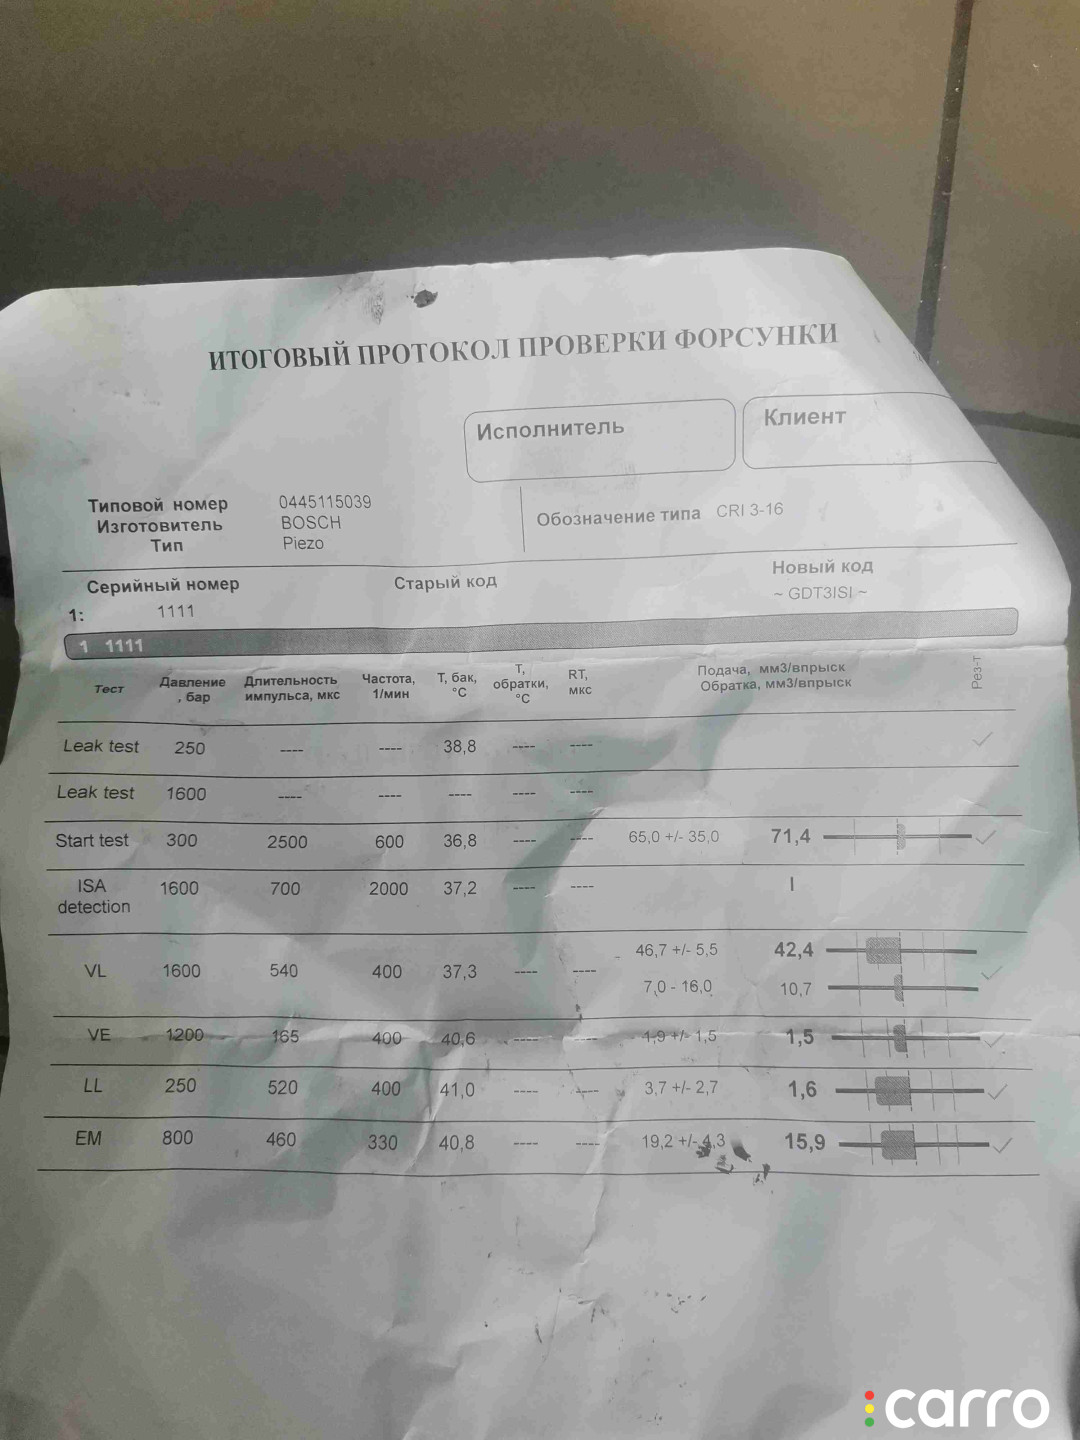 ИТОГОВЫЙ ПРОТОКОЛ ПРОВЕРКИ ФОРСУНКИ
Исполнитель Клиент
Типовой номер 0445115039
Изготовитель BOSCH
Тип Piezo
Обозначение типа CRI 3-16
Серийный номер Старый код Новый код
1: 1111 ~ GDT3ISI ~
1 1111
Тест Давление, бар Длительность импульса, мкс Частота, 1/мин Т, бак, °C Т, обратки, °C RT, мкс Подача, мм3/впрыск Рез-т
Обратка, мм3/впрыск
Leak test 250 ---- ---- 38,8 ---- ----
Leak test 1600 ---- ---- ---- ---- ----
Start test 300 2500 600 36,8 ---- ---- 65,0 +/- 35,0 71,4
ISA detection 1600 700 2000 37,2 ---- ---- I
VL 1600 540 400 37,3 ---- ---- 46,7 +/- 5,5 42,4
7,0 - 16,0 10,7
VE 1200 165 400 40,6 ---- ---- 1,9 +/- 1,5 1,5
LL 250 520 400 41,0 ---- ---- 3,7 +/- 2,7 1,6
EM 800 460 330 40,8 ---- ---- 19,2 +/- 4,3 15,9
carro